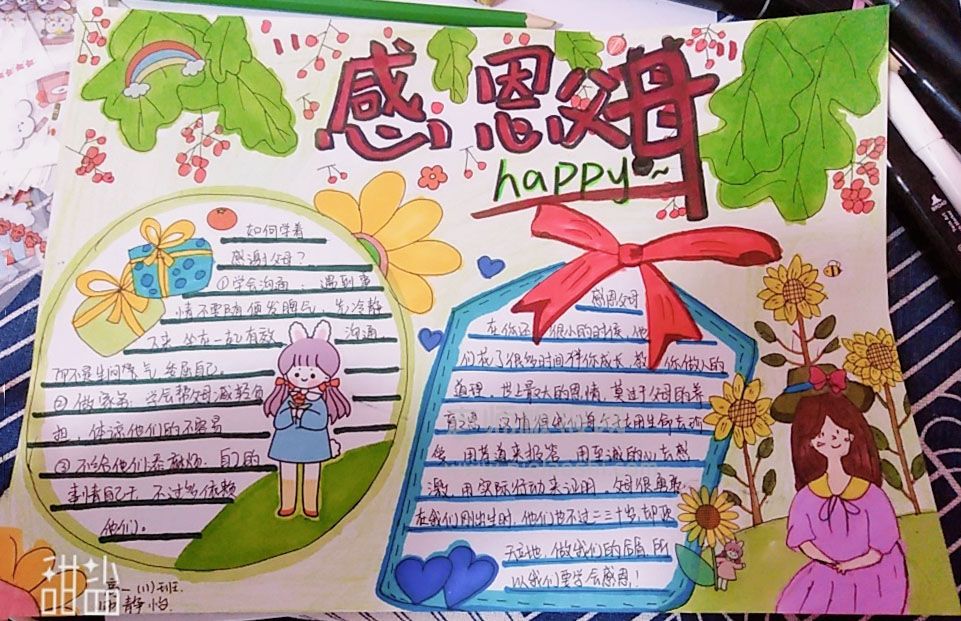 感恩父母
happy~
如何学着
感谢父母？
①学会沟通：遇到事
情不要随便发脾气，先冷静
下来坐在一起有效 沟通
而不是生闷气，委屈自己。
②做家务：学会帮父母减轻负
担，体谅他们的不容易
③不给他们添麻烦，自己的
事情自己干，不过多依赖
他们。
感恩父母
在你还很小的时候，他
们花了很多时间伴你成长，教你做人的
道理，世上最大的恩情，莫过于父母的养
育之恩，值得我们每个去用生命去
用孝道来报答，用至诚的心去感
激，用实际行动来证明，父母很
在我们刚出生时，他们也不过二三十岁，却顶
天立地，做我们的后盾，所
以我们要学会感恩！
(11)班
静怡
甜盐